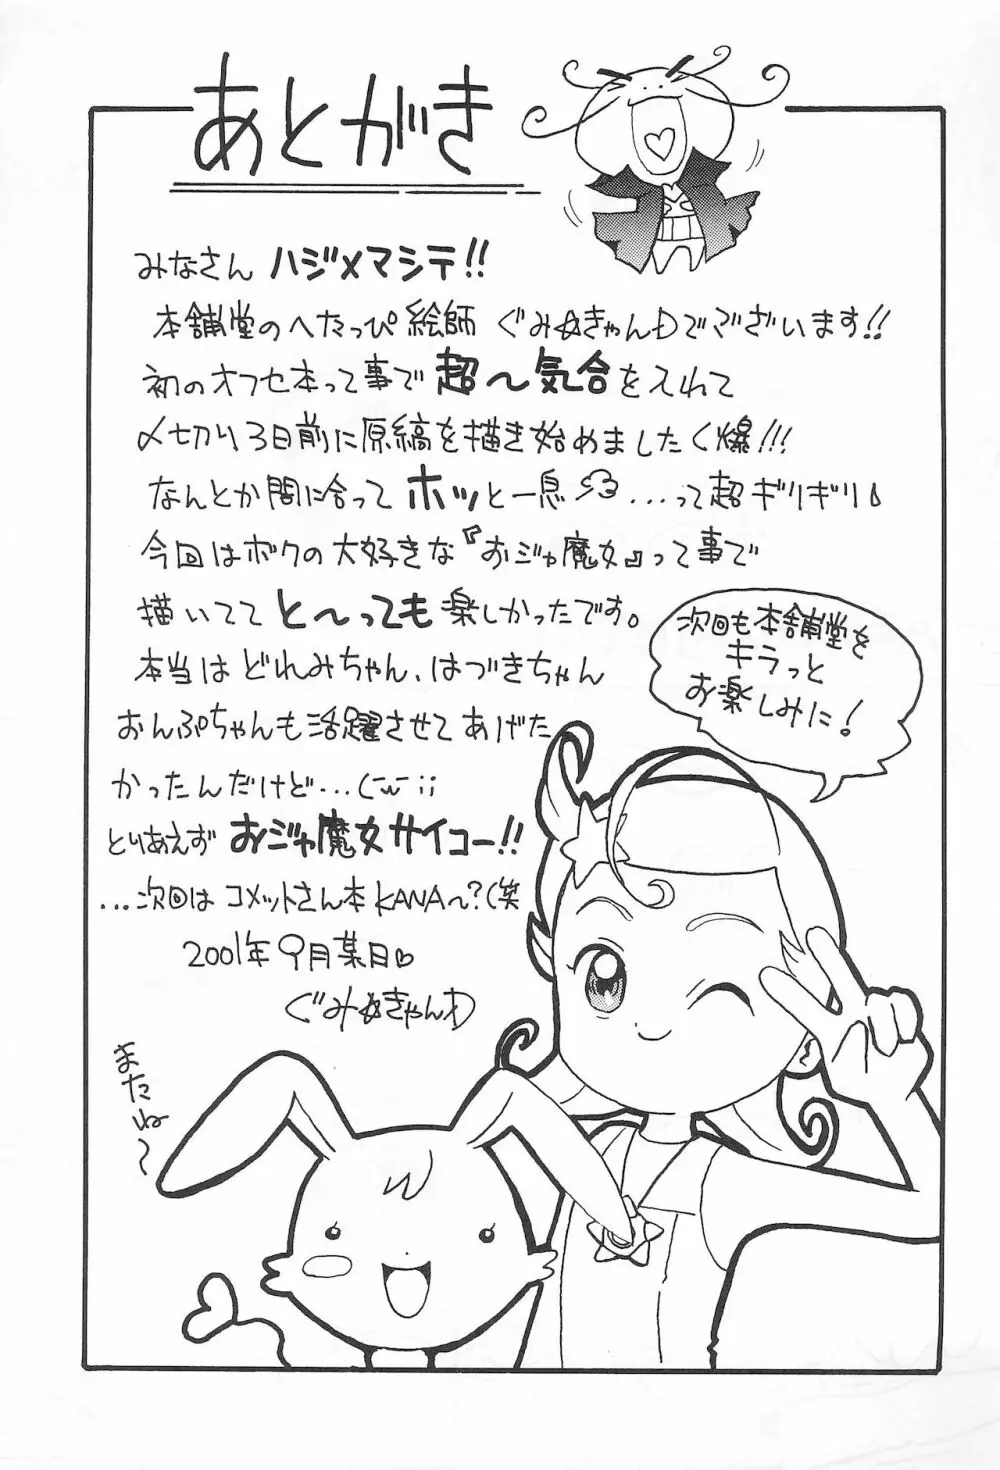 あとがき
みなさん ハジメマシテ!!
本舗堂のへたっぴ絵師 ぐみ☆きゃんDでございます!!
初のオフセ本って事で 超〜気合を入れて
〆切り3日前に原稿を描き始めましたく爆!!!
なんとか間に合って ホッと一息 ...って超ギリギリ
今回はボクの大好きな『おジャ魔女』って事で
描いてて と〜っても 楽しかったです。
本当は どれみちゃん、はづきちゃん
おんぷちゃんも活躍させてあげた
かったんだけど...(-w-;;
とりあえず おジャ魔女サイコー!!
...次回は コメットさん本KANA〜?(笑
2001年 9月某日♡
ぐみ☆きゃんD
次回も本舗堂を
キラっと
お楽しみに!
またね〜